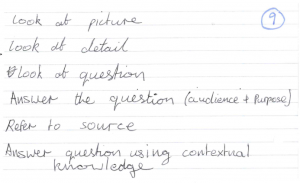 Look at picture
9
Look at detail
Look at question
Answer the question (audience + Purpose)
Refer to source
Answer question using contextual
knowledge